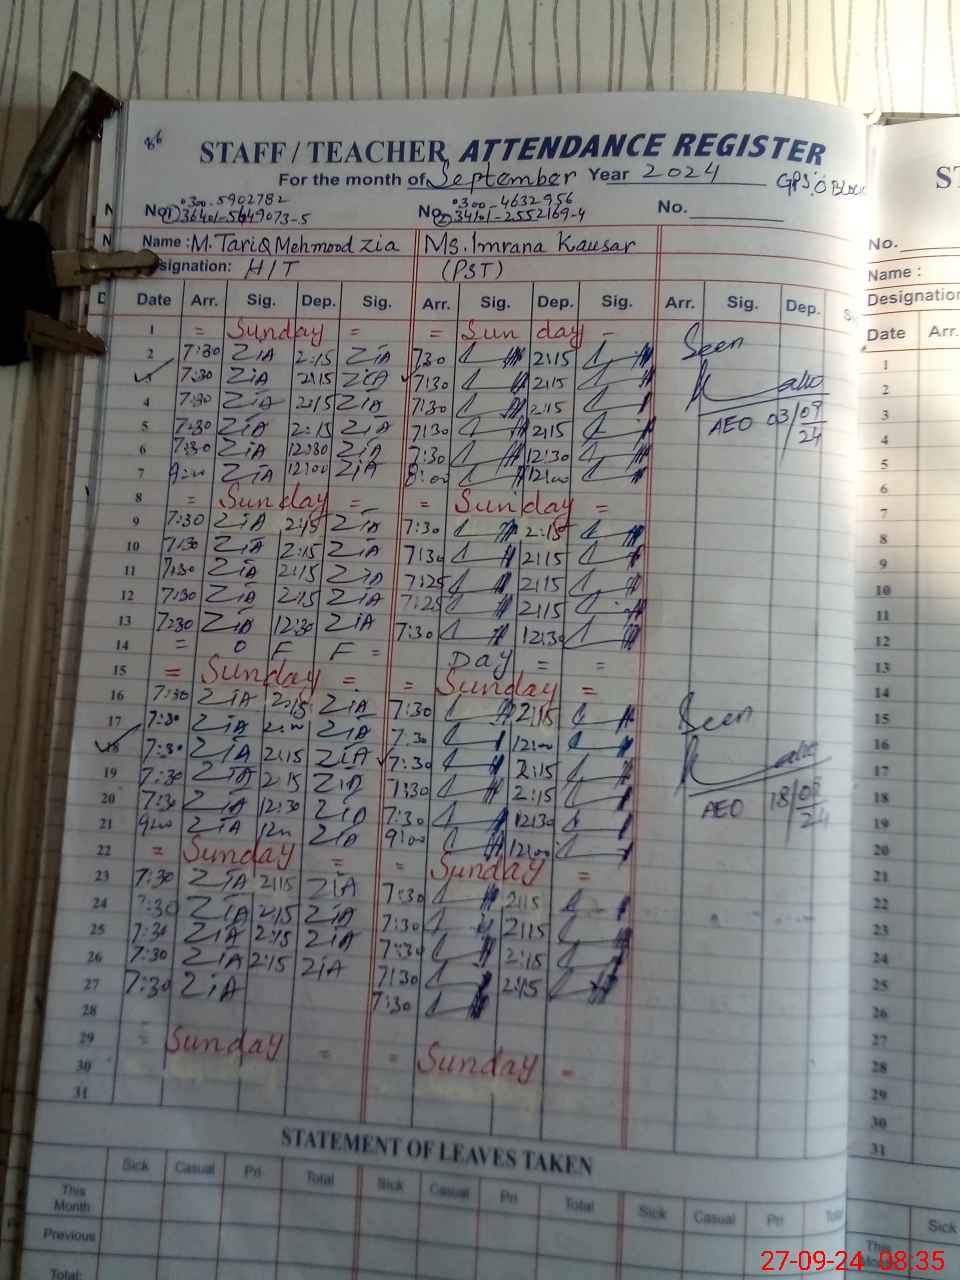 86
STAFF / TEACHER ATTENDANCE REGISTER
For the month of September Year 2024 GPS, O Block
0300-5902782 0300-4632956
No. ① 36401-5649073-5 No. ② 34101-2552169-4 No.
Name : M. TariQ Mehmood Zia Ms. Imrana Kausar
signation: H/T (PST)
Date Arr. Sig. Dep. Sig. Arr. Sig. Dep. Sig. Arr. Sig. Dep.
1 = Sunday = = Sunday - Seen
2 7:30 ZiA 2:15 ZiA 7:30 2:15
3 7:30 ZiA 2:15 ZiA 7:30 2:15
4 7:30 ZiA 2:15 ZiA 7:30 2:15 AEO 03/09/24
5 7:30 ZiA 2:15 ZiA 7:30 2:15
6 7:30 ZiA 12:30 ZiA 7:30 12:30
7 9:00 ZiA 12:00 ZiA 8:00 12:00
8 = Sunday = = Sunday =
9 7:30 ZiA 2:15 ZiA 7:30 2:15
10 7:30 ZiA 2:15 ZiA 7:30 2:15
11 7:30 ZiA 2:15 ZiA 7:25 2:15
12 7:30 ZiA 2:15 ZiA 7:25 2:15
13 7:30 ZiA 12:30 ZiA 7:30 12:30
14 = O F F = DAY = =
15 = Sunday = = Sunday =
16 7:30 ZiA 2:15 ZiA 7:30 2:15 Seen
17 7:30 ZiA ZiA 7:30 12:00
18 7:30 ZiA 2:15 ZiA 7:30 2:15
19 7:30 ZiA 2:15 ZiA 7:30 2:15 AEO 18/09/24
20 7:30 ZiA 12:30 ZiA 7:30 12:30
21 9:00 ZiA 1200 ZiA 9:00 12:00
22 = Sunday = = Sunday =
23 7:30 ZiA 2:15 ZiA 7:30 2:15
24 7:30 ZiA 2:15 ZiA 7:30 2:15
25 7:30 ZiA 2:15 ZiA 7:30 2:15
26 7:30 ZiA 2:15 ZiA 7:30 2:15
27 7:30 ZiA 7:30
28
29 = Sunday = = Sunday -
30
31
STATEMENT OF LEAVES TAKEN
Sick Casual Pri Total Sick Casual Pri Total Sick Casual Pri
This Month
Previous
Total:
ST
No.
Name :
Designation
Date Arr.
1
2
3
4
5
6
7
8
9
10
11
12
13
14
15
16
17
18
19
20
21
22
23
24
25
26
27
28
29
30
31
Sick
27-09-24 08:35